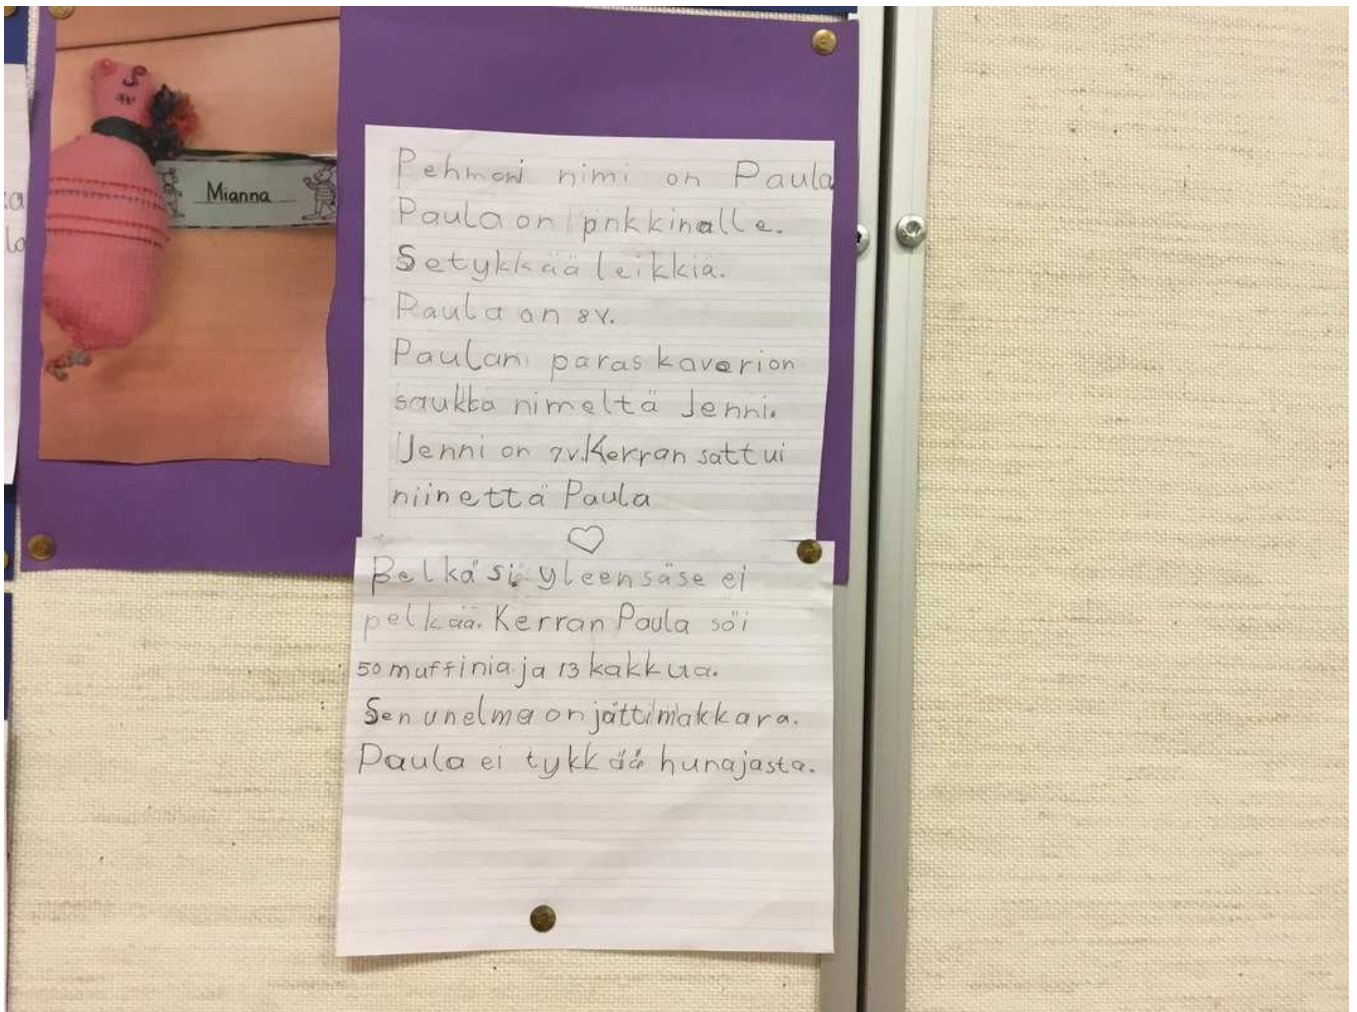 Mianna
Pehmoni nimi on Paula
Paula on pinkkinalle.
Setykkää leikkiä.
Paula on 8v.
Paulan paras kaverion
saukko nimeltä Jenni.
Jenni on 7v. Kerran sattui
niinettä Paula
Pelkäsi yleensäse ei
pelkää. Kerran Paula söi
50 muffinia ja 13 kakkua.
Sen unelma on jättimakkara.
Paula ei tykkää hunajasta.